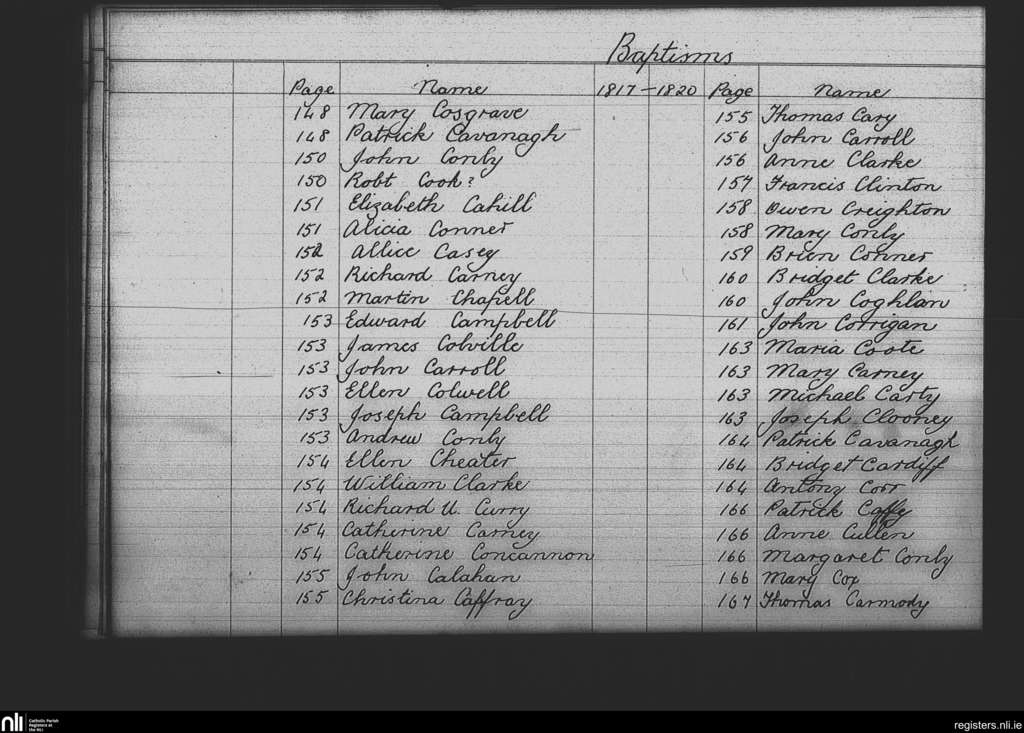 Baptisms
Page Name 1817-1820 Page Name
148 Mary Cosgrave 155 Thomas Cary
148 Patrick Cavanagh 156 John Carroll
150 John Conly 156 Anne Clarke
150 Robt Cook? 157 Francis Clinton
151 Elizabeth Cahill 158 Owen Creighton
151 Alicia Conner 158 Mary Conly
152 Allice Casey 159 Brien Conner
152 Richard Carney 160 Bridget Clarke
152 Martin Chapell 160 John Coghlan
153 Edward Campbell 161 John Corrigan
153 James Colville 163 Maria Coote
153 John Carroll 163 Mary Carney
153 Ellen Colwell 163 Michael Carty
153 Joseph Campbell 163 Joseph Clooney
153 Andrew Conly 164 Patrick Cavanagh
154 Ellen Cheater 164 Bridget Cardiff
154 William Clarke 164 Antony Corr
154 Richard U. Curry 166 Patrick Caffy
154 Catherine Carney 166 Anne Cullen
154 Catherine Concannon 166 Margaret Conly
155 John Calahan 166 Mary Cox
155 Christina Caffray 167 Thomas Carmody
nli Catholic Parish Registers at the NLI
registers.nli.ie